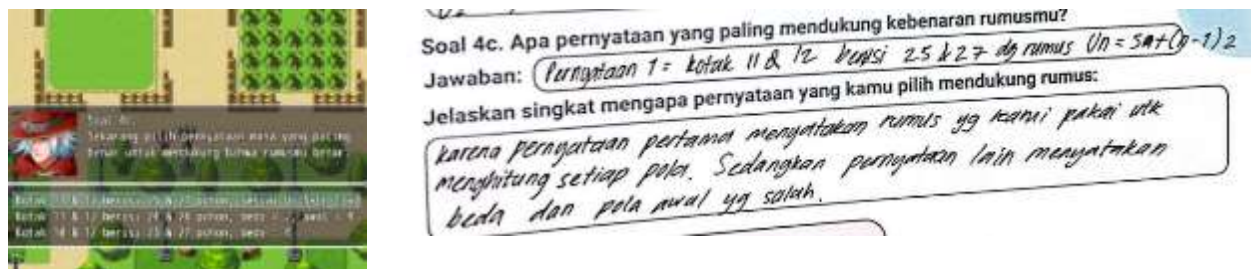 Soal 4c.
Sekarang pilih pernyataan mana yang paling
benar untuk mendukung bahwa rumusmu benar.
Kotak 11 & 12 berisi 25 & 27 pohon,
Kotak 11 & 12 berisi 24 & 26 pohon, beda
Kotak 11 & 12 berisi 25 & 27 pohon, beda
Soal 4c. Apa pernyataan yang paling mendukung kebenaran rumusmu?
Jawaban: Pernyataan 1 = kotak 11 & 12 berisi 25 & 27 dg rumus Un = 5a+(n-1)2
Jelaskan singkat mengapa pernyataan yang kamu pilih mendukung rumus:
karena pernyataan pertama menyatakan rumus yg kami pakai utk
menghitung setiap pola. Sedangkan pernyataan lain menyatakan
beda dan pola awal yg salah.